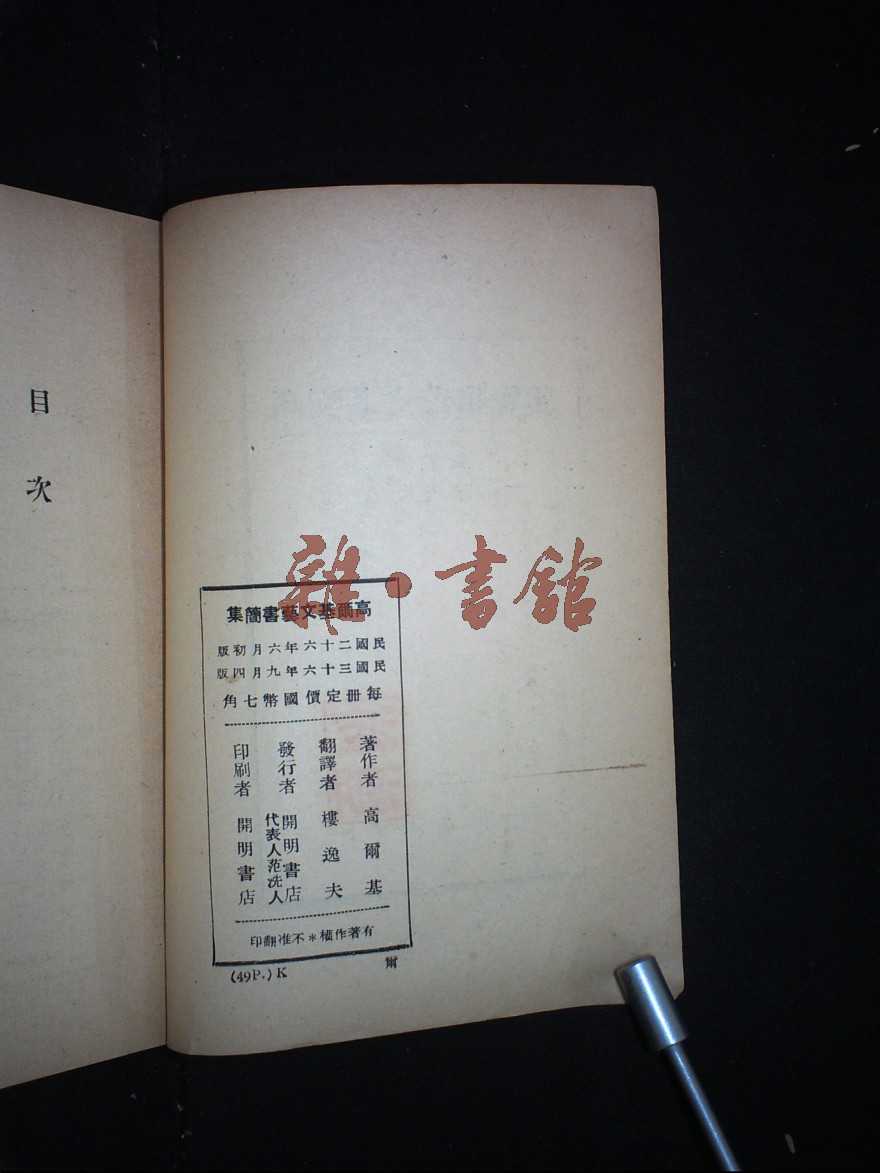 目次
高爾基文藝書簡集
民國二十六年六月初版
民國三十六年九月四版
每册定價國幣七角
著作者 高爾基
翻譯者 樓逸夫
發行者 開明書店
代表人范洗人
印刷者 開明書店
有著作權*不准翻印
(49P.)K
爾
雜·書館